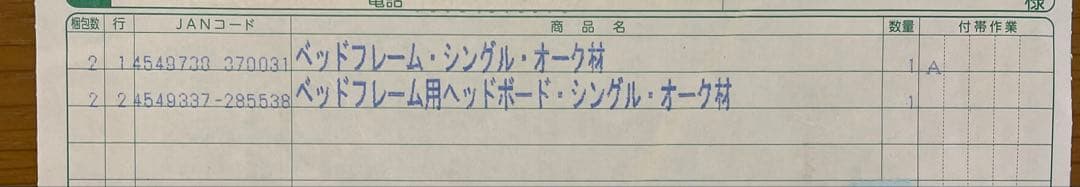 様
梱包数 行 JANコード 商品名 数量 付帯作業
2 1 4549738 370031 ベッドフレーム・シングル・オーク材 1 A
2 2 4549337-285538 ベッドフレーム用ヘッドボード・シングル・オーク材 1